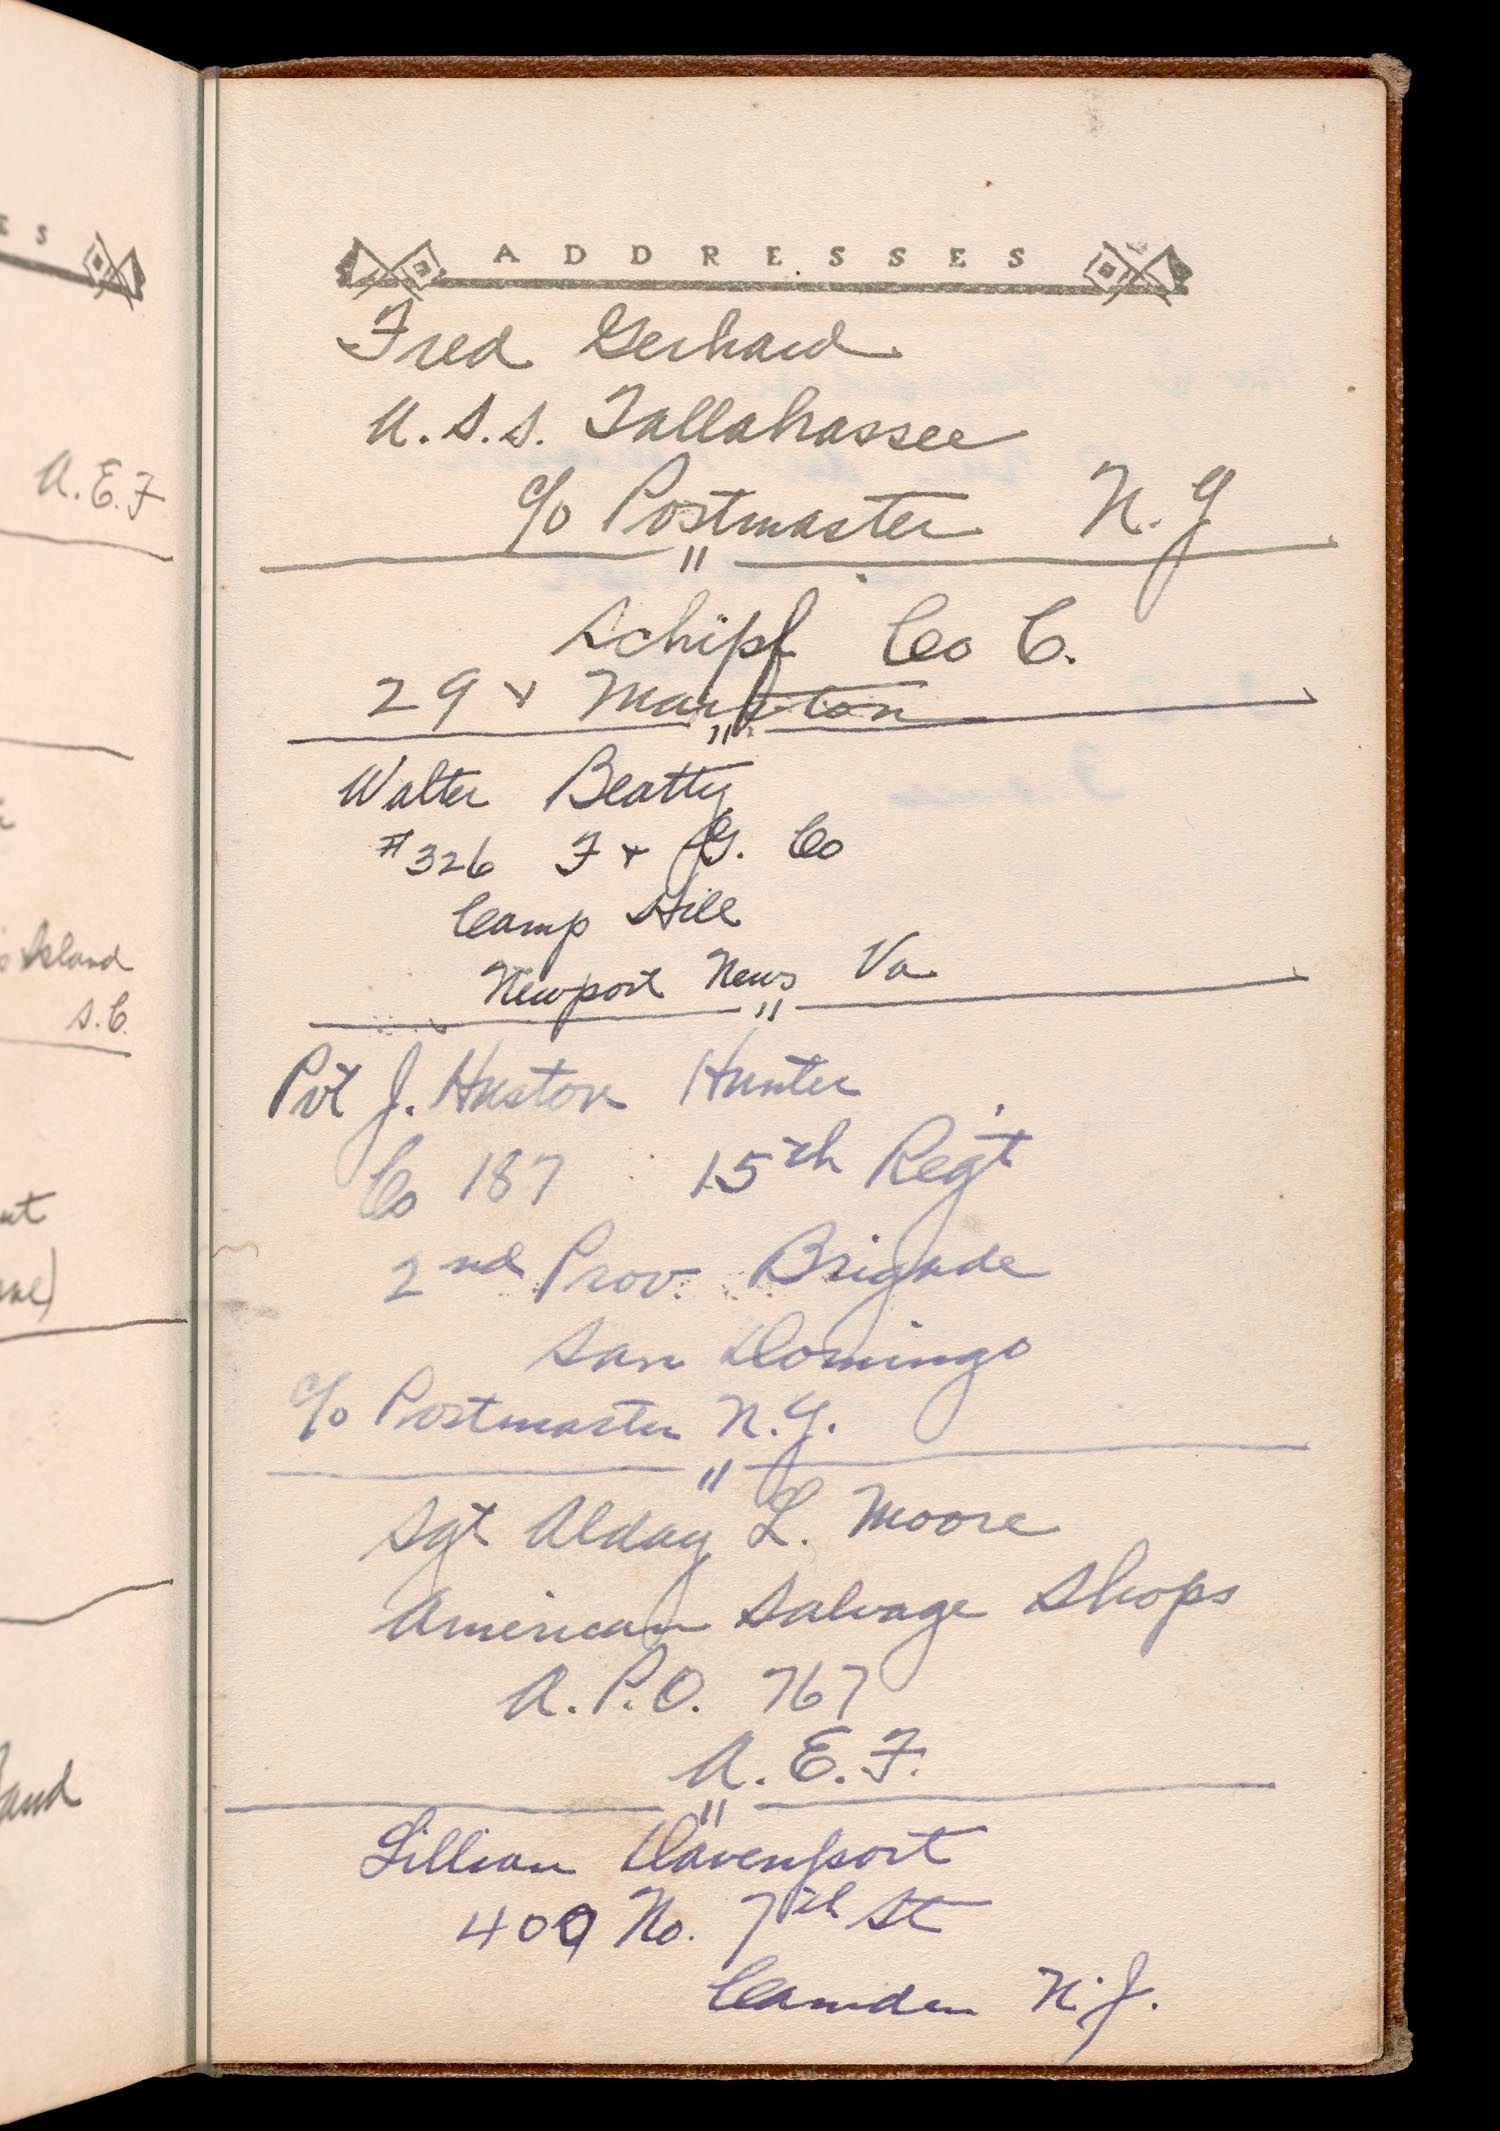 E S
A. E. F
Island
S. C.
ADDRESSES
Fred Gerhard
U. S. S. Tallahassee
c/o Postmaster N. Y
"
Schipf Co C.
29 + Marston
"
Walter Beatty
#326 F + G. Co
Camp Hill
Newport News Va
"
Pvt J. Huston Hunter
Co 187 15th Reg't
2nd Prov. Brigade
San Domingo
c/o Postmaster N. Y.
"
Sgt Alday L. Moore
American Salvage Shops
A. P. O. 767
A. E. F.
"
Lillian Davenport
409 No. 7th St
Camden N. J.